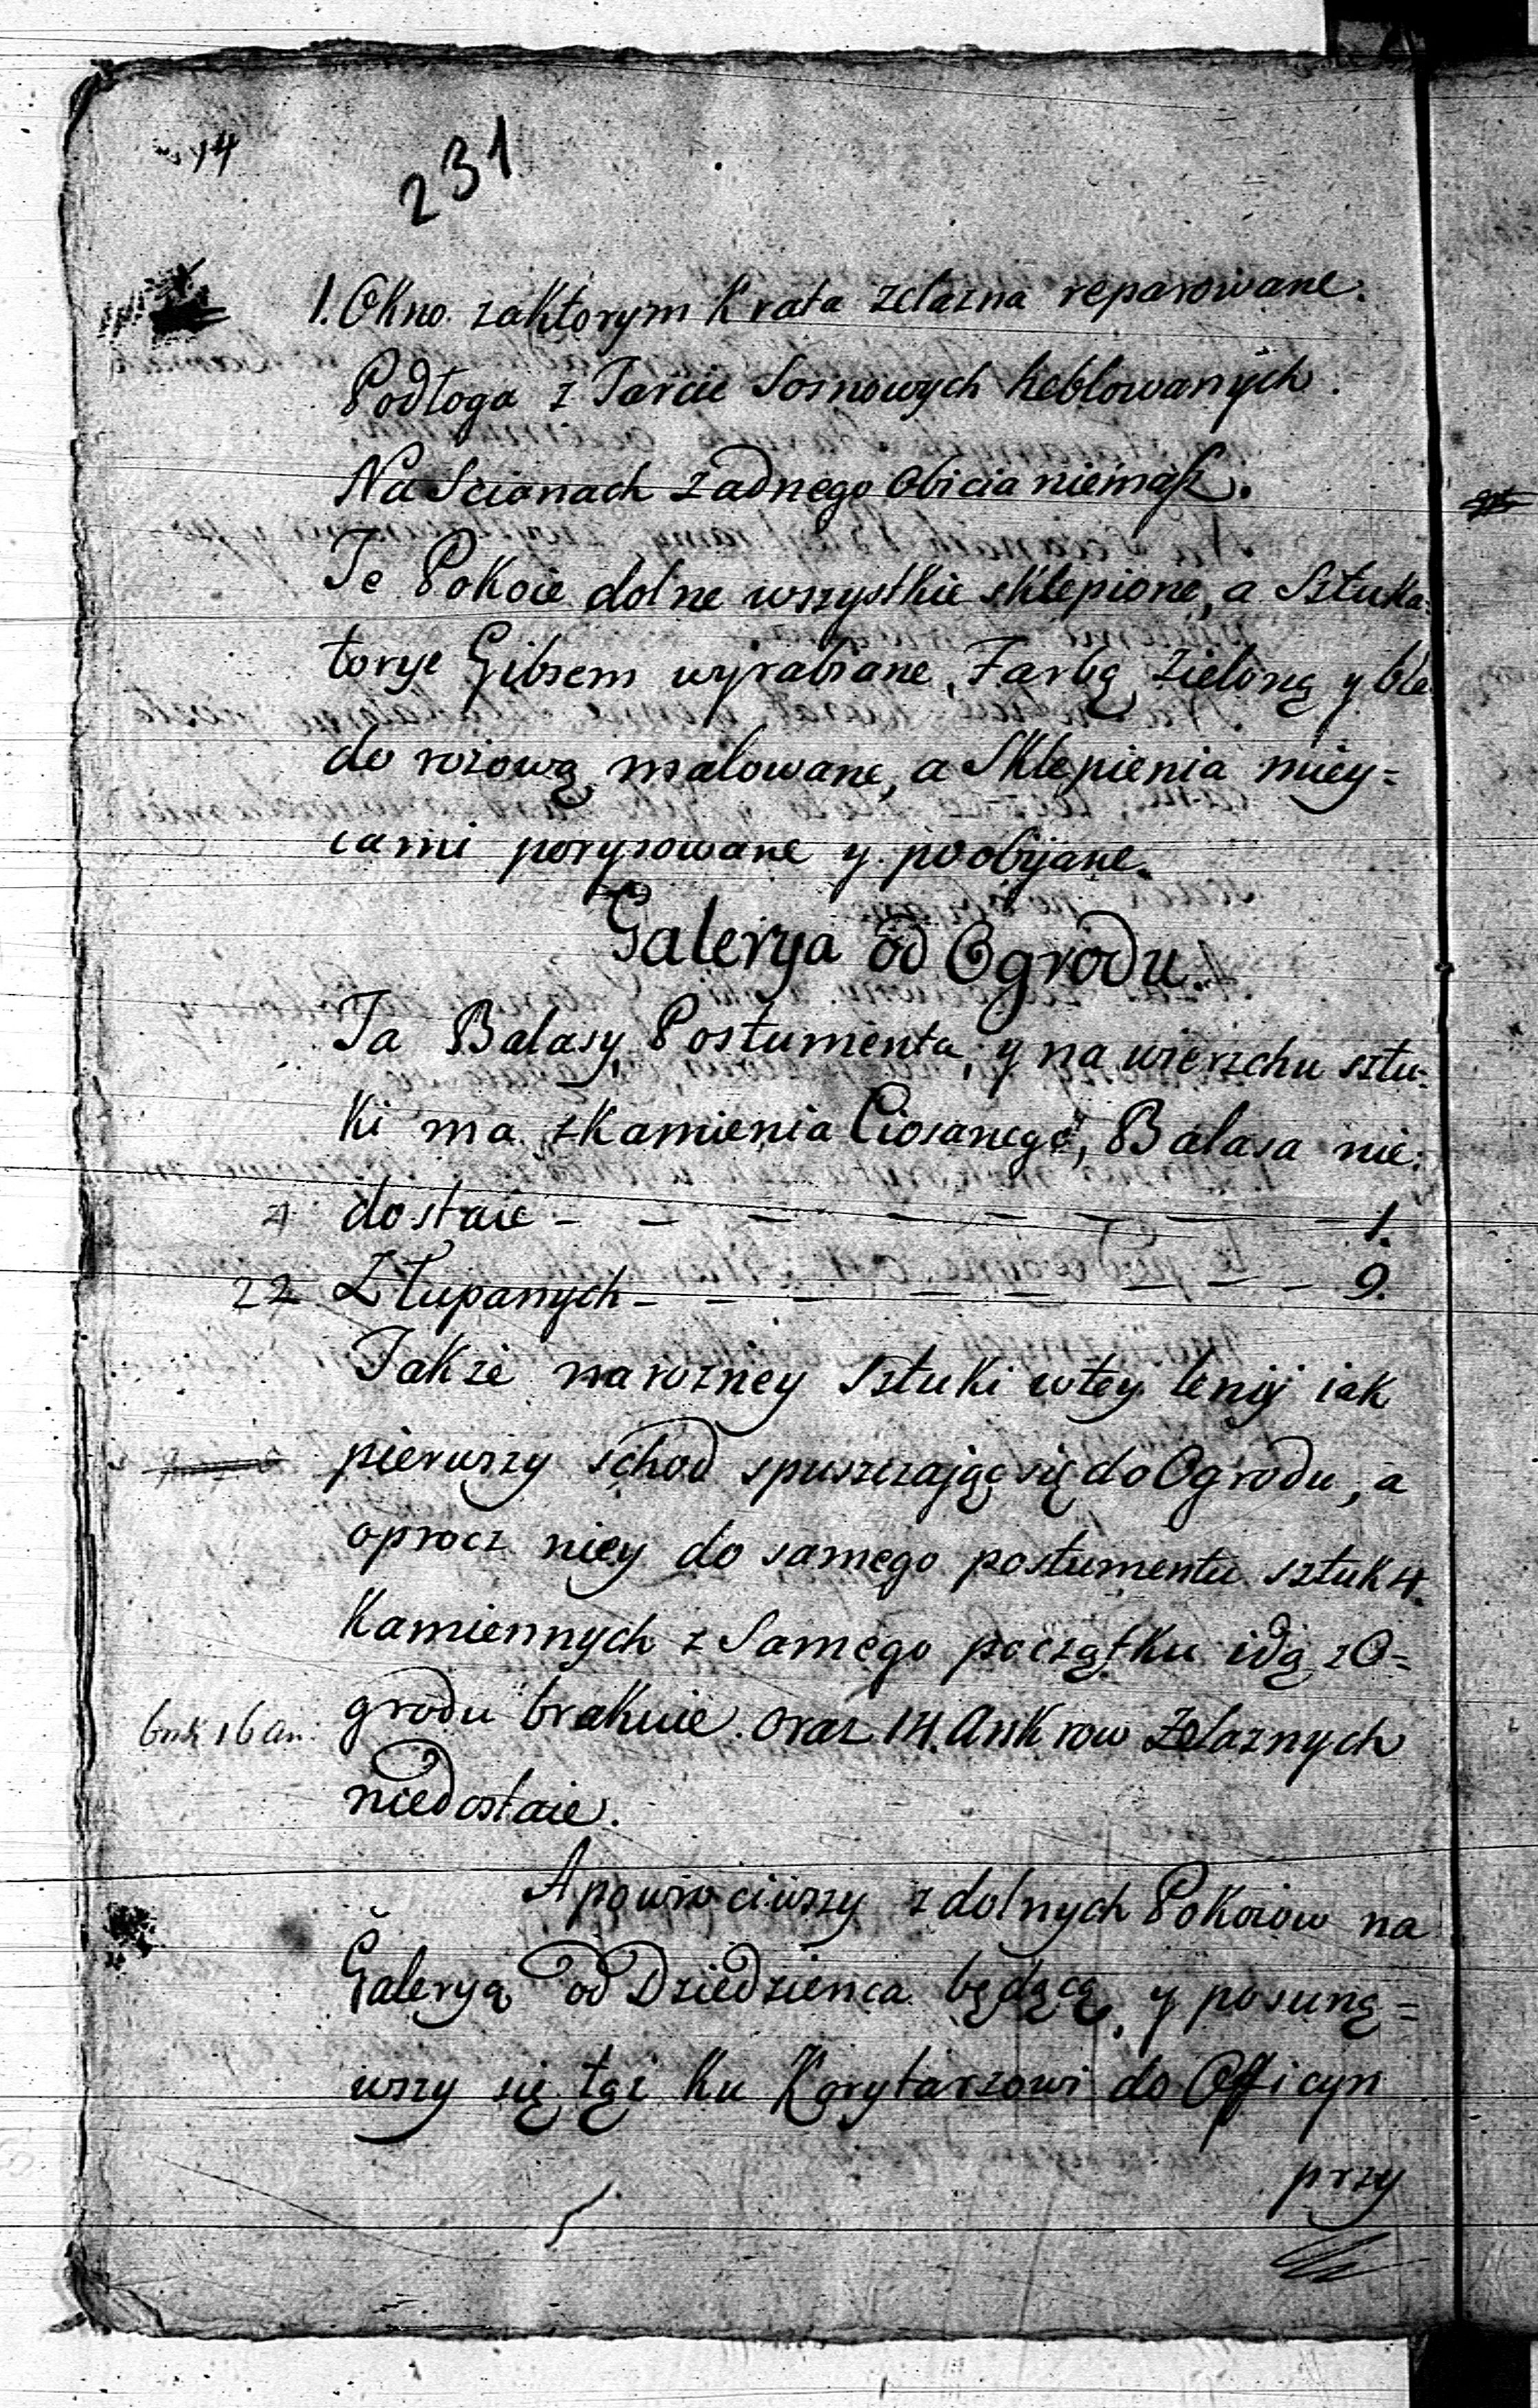 14
231
1. Okno zaktorym Krata zelazna reparowane.
Podłoga z Tarcic Sosnowych heblowanych.
Na Scianach zadnego obicia niemasz.
Te Pokoie dolne wszystkie sklepione, a Sztuka-
torye Gibsem wyrabiane, Farbą zieloną y bla
do rożową malowane, a Sklepienia miey=
scami porysowane y poobijane.
Galerya od Ogrodu.
Ta Balasy, Postumenta, y na wierzchu sztu-
ki ma z Kamienia Ciosanego, Balasa nie-
4 dostaie - - - - - - - - 1.
22 Złupanych - - - - - - - - 9.
Także narozney Sztuki wtey lenij iak
pierwszy schod spuszczaiąc się do Ogrodu, a
oprocz niey do samego postumentu sztuk 4.
Kamiennych z Samego początku idą z O=
grodu brakuie. oraz 14. Ankrow Zelaznych
brak 16 an:
niedostaie.
A powrociwszy z dolnych Pokoiow na
Galeryą od Dziedzienca będącą, y posuną=
wszy się tąż ku Korytarzowi do Officyn
przy